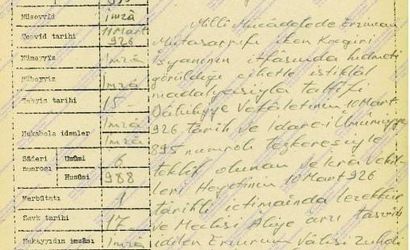 Müsevvid
İmza
Tesvid tarihi
11 Mart
926
Mümeyyiz
İmza
Mübeyyiz
İmza
Tebyiz tarihi
15
Mukabele idenler
İmza
İmza
Sâderi numrosi
Umûmî
6
Husûsî
988
Merbûtatı
1
Sevk tarihi
17
Mukayyidin imzâsı
İmza
Millî Mücadelede Erzincan
Mutasarrıfı iken Koçgiri
isyanının itfasında hizmeti
görüldüğü cihetle istiklâl
madalyasıyla taltifi
Dâhiliyye Vekâletinin 10 Mart
926 tarih ve İdare-i Umûmiyye
895 numrolı tezkeresiyle
teklif olunan ve İcra Vekil
leri Heyetinin 10 Mart 926
tarihli ictimaında tezekkür
ve Meclisi Âliye arzı tasvib
idilen Erzurum Valisi Zühdi